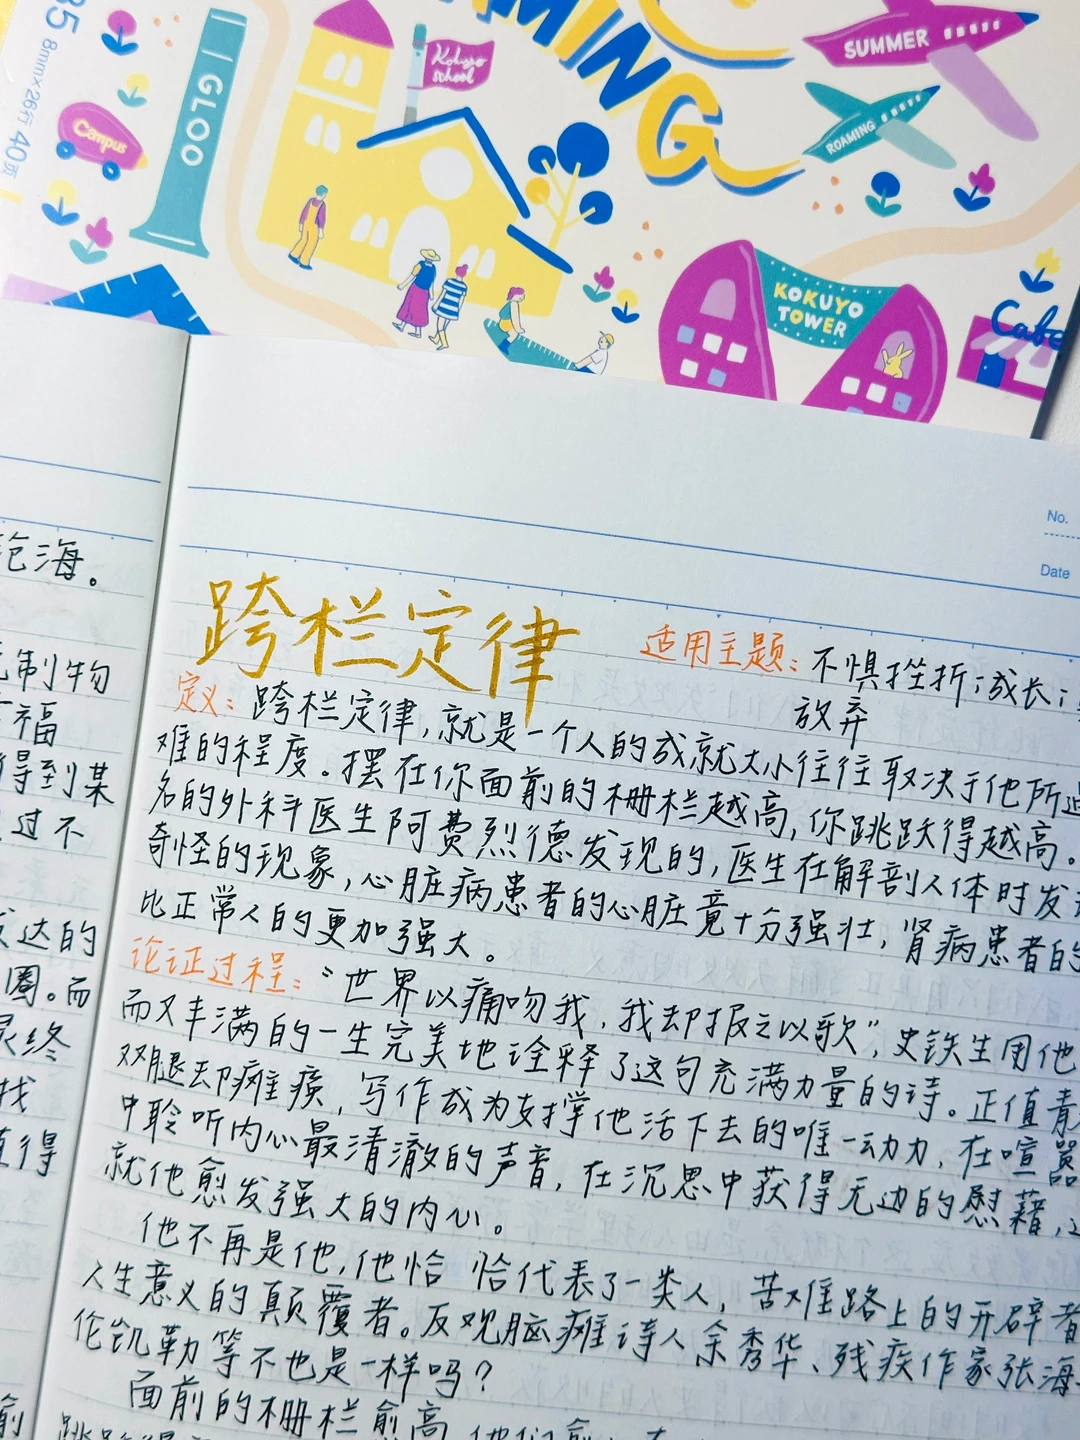 35 8mm×26行 40页
Campus
GLOO
Kokuyo
School
AMING
SUMMER
ROAMING
KOKUYO
TOWER
Cafe
No.
Date
沧海。
制物
福
得到某
过不
达的
圈。而
终
找
值得
前
跨栏定律
适用主题：不惧挫折；成长；
放弃
定义：跨栏定律，就是一个人的成就大小往往取决于他所遇
难的程度。摆在你面前的栅栏越高，你跳跃得越高。
名的外科医生阿费烈德发现的，医生在解剖人体时发
奇怪的现象，心脏病患者的心脏竟十分强壮，肾病患者的
比正常人的更加强大。
论证过程：“世界以痛吻我，我却报之以歌”，史铁生用他
而又丰满的一生完美地诠释了这句充满力量的诗。正值青
双腿却瘫痪，写作成为支撑他活下去的唯一动力，在喧嚣
中聆听内心最清澈的声音，在沉思中获得无边的慰藉，
就他愈发强大的内心。
他不再是他，他恰 恰代表了一类人，苦难路上的开辟者
人生意义的颠覆者。反观脑瘫诗人余秀华、残疾作家张海
伦凯勒等不也是一样吗？
面前的栅栏愈高，他们愈